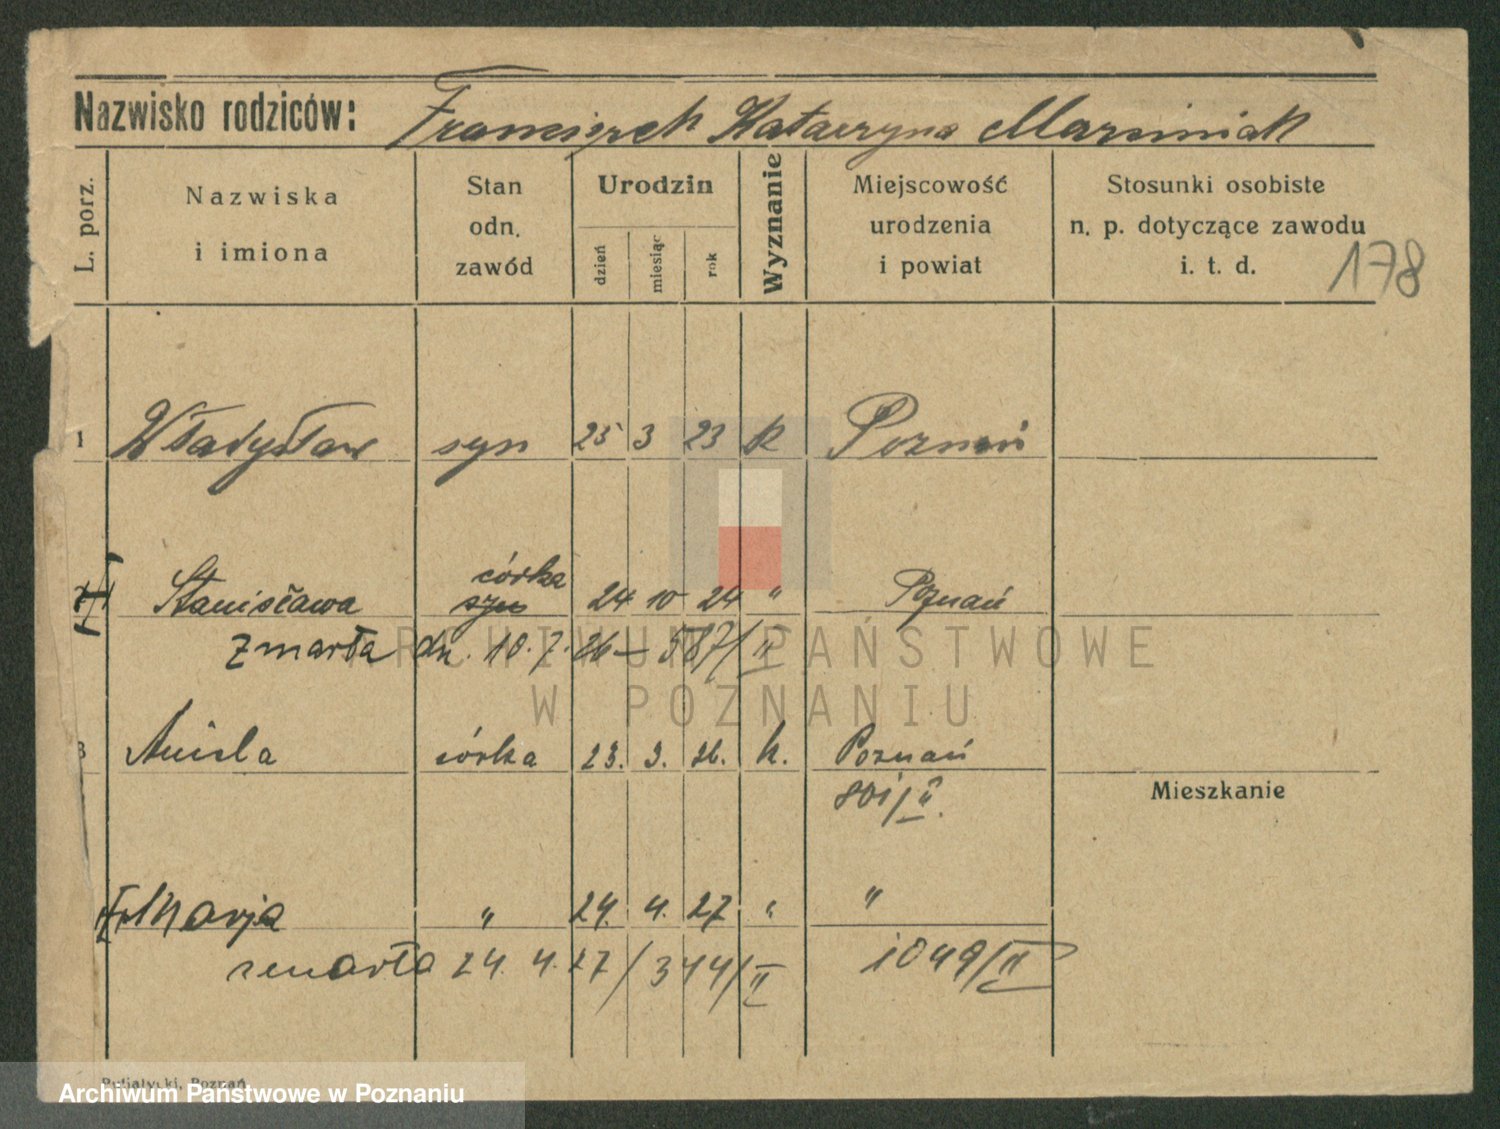 Nazwisko rodziców: Franciszek Katarzyna Marciniak
L. porz.
Nazwiska i imiona
Stan odn. zawód
Urodzin
dzień
miesiąc
rok
Wyznanie
Miejscowość urodzenia i powiat
Stosunki osobiste n. p. dotyczące zawodu i. t. d.
178
1 Władysław syn 25 3 23 k Poznań
córka
Stanisława syn 24 10 24 " Poznań
zmarła dn. 10. 7. 26 — 587/II
ARCHIWUM PAŃSTWOWE
W POZNANIU
3 Aniela córka 23. 3. 26. k. Poznań
801/II.
Mieszkanie
Marja " 24. 4. 27 " "
zmarła 24. 4. 27 / 344/II 1049/II
Putiatycki, Poznań
Archiwum Państwowe w Poznaniu